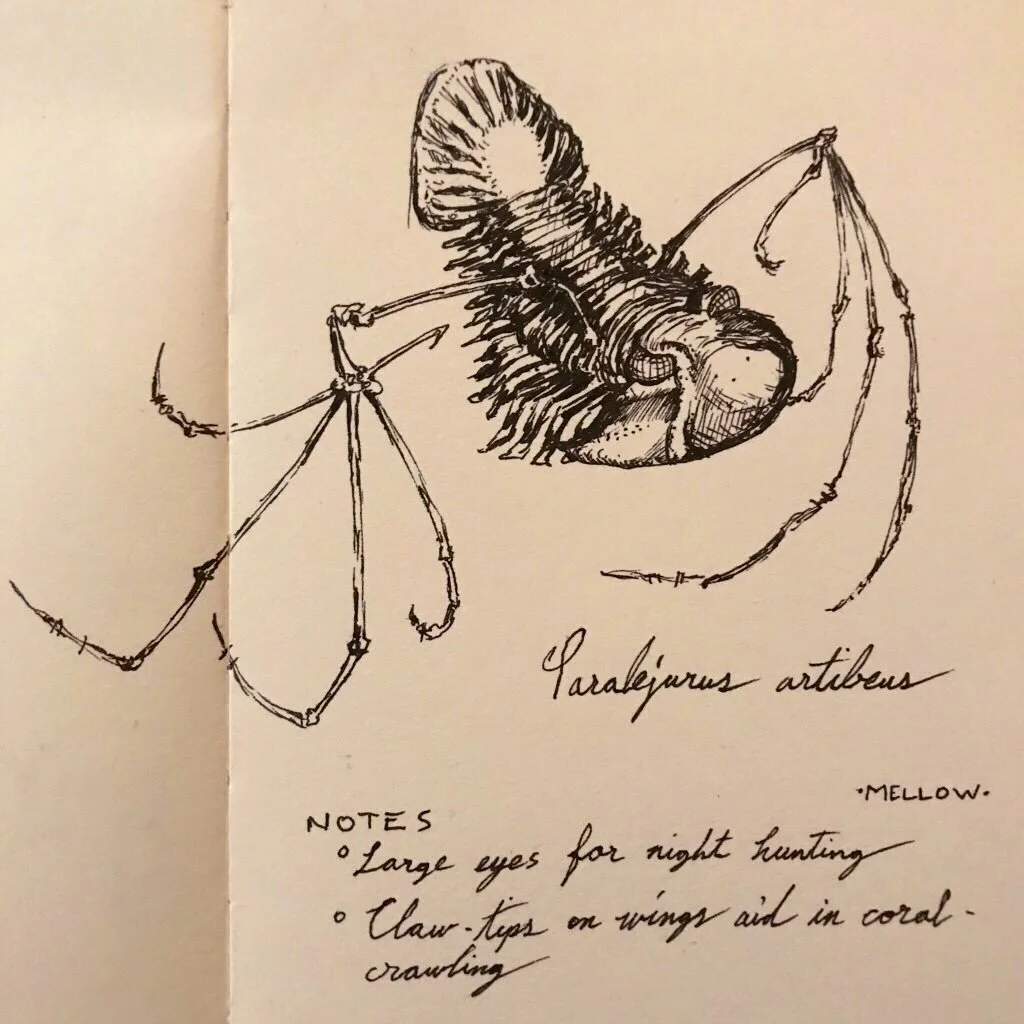 Paralejurus artibeus
·MELLOW·
NOTES
° Large eyes for night hunting
° Claw-tips on wings aid in coral-
crawling